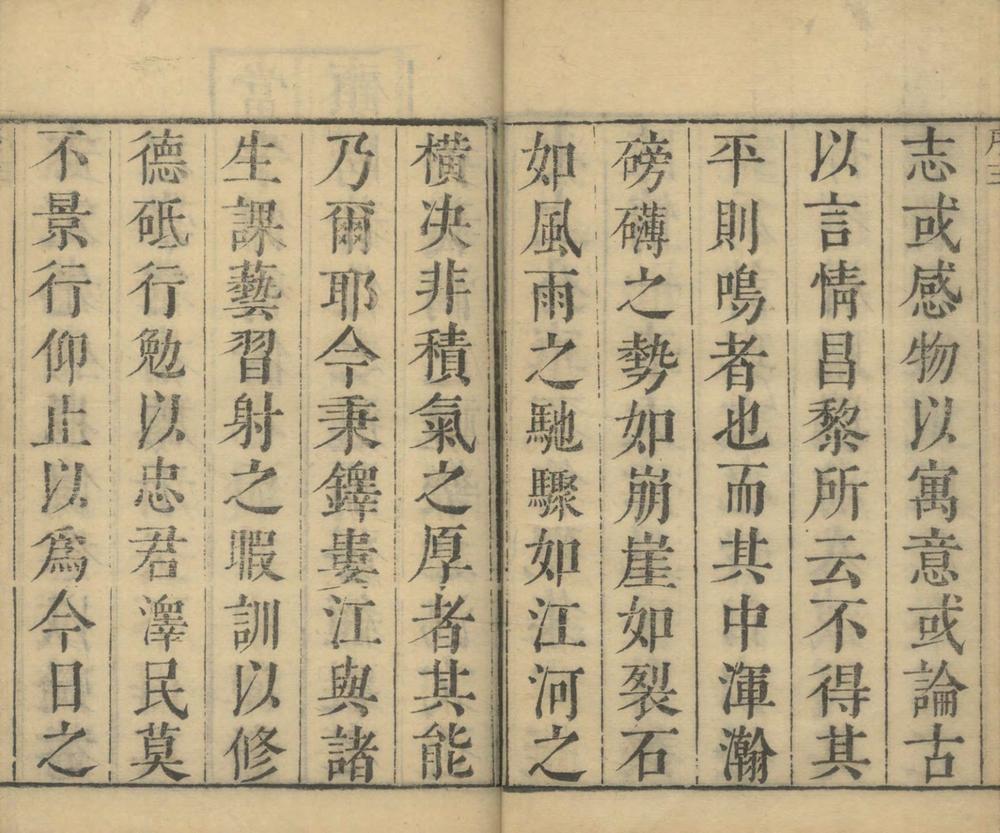 志或感物以寓意或論古
以言情昌黎所云不得其
平則鳴者也而其中渾瀚
磅礴之勢如崩崖如裂石
如風雨之馳驟如江河之
橫決非積氣之厚者其能
乃爾耶今秉鐸婁江與諸
生課藝習射之暇訓以修
德砥行勉以忠君澤民莫
不景行仰止以爲今日之